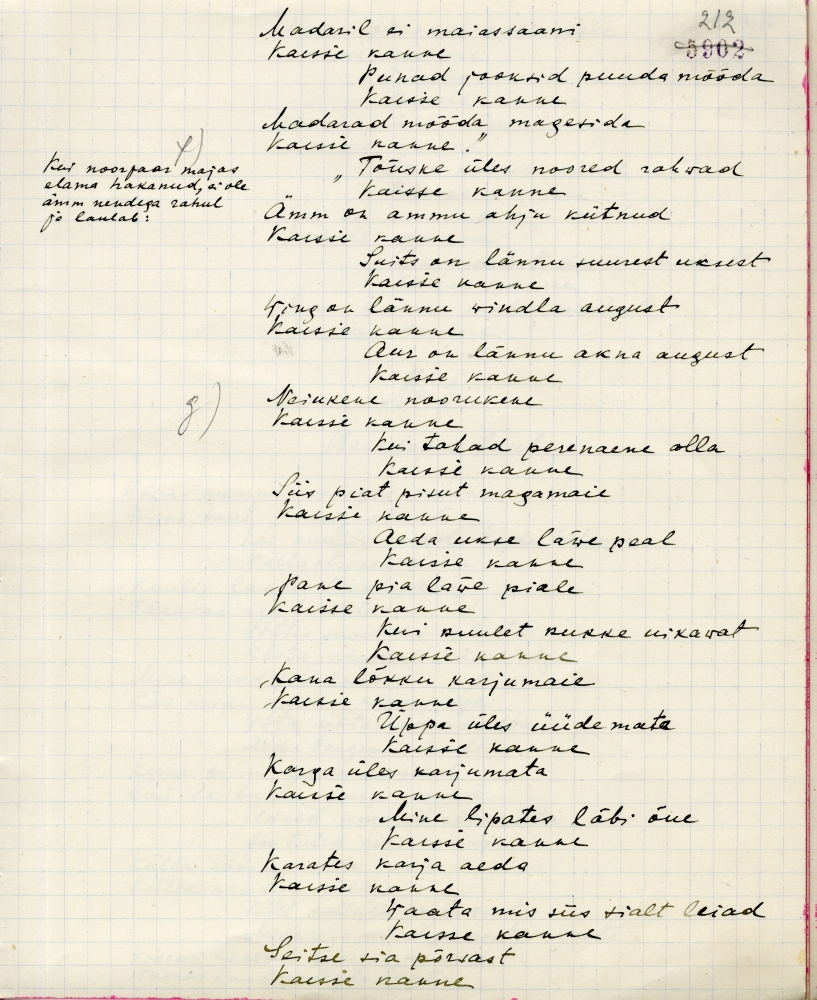 212
5902
Madaril ei maiassaani
Kaissē kanne
Punad jooksid puuda mööda
Kaisse kanne
Madarad mööda magesida
Kaissē kanne."
f)
Kui noorpaar majas
elama hakanud, ei ole
ämm nendega rahul
ja laulab:
"Tõuske üles noored rahwad
Kaisse kanne
Ämm on ammu ahju kütnud
Kaissē kanne
Suits on lännu suurest uksest
Kaissē kanne
Wing on lännu windla august
Kaissē kanne
Aur on lännu akna august
Kaissē kanne
g)
Neiukene noorukene
Kaissē kanne
Kui tahad perenaene olla
Kaissē kanne
Siis piat pisut magamaie
Kaissē kanne
Aeda ukse läwe peal
Kaissē kanne
Pane pia läwe piale
Kaisse kanne
Kui kuulet kukke uikawat
Kaissē kanne
Kana lõkku karjumaie
Kaissē kanne
Üppa üles üüdemata
Kaissē kanne
Karga üles karjumata
Kaissē kanne
Mine lipates läbi õue
Kaissē kanne
Karates karja aeda
Kaissē kanne
Waata mis siis sialt leiad
Kaisse kanne
Seitse sia põrsast
Kaissē kanne